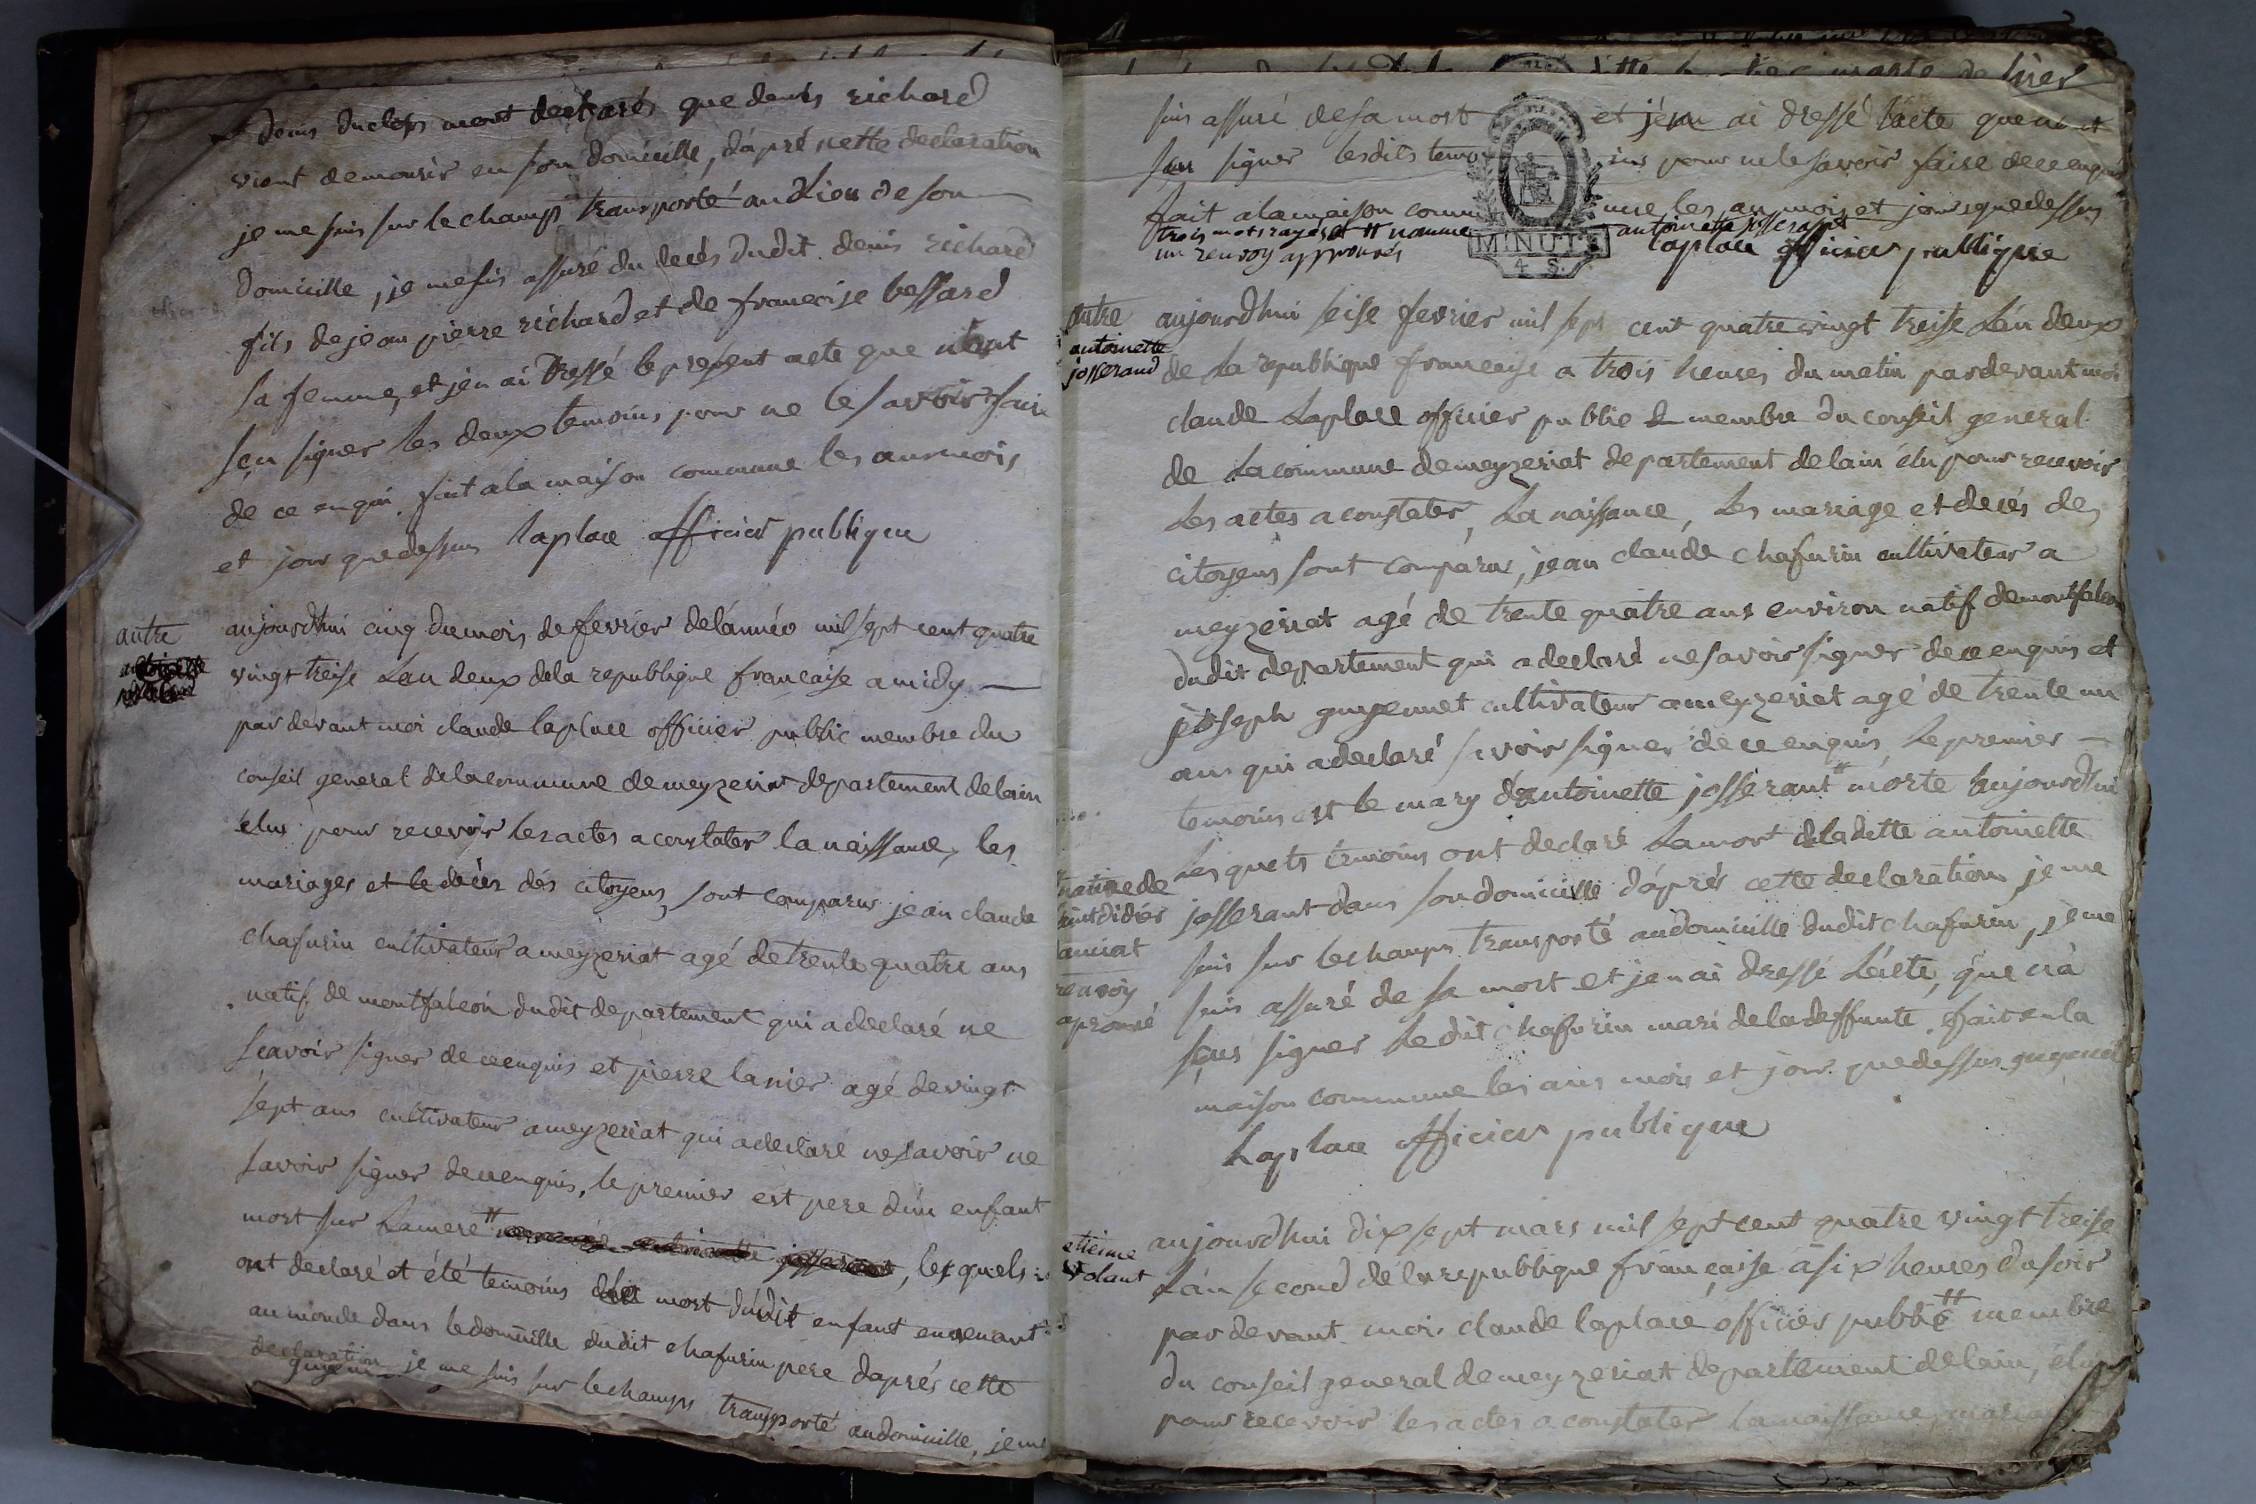 denis duclos mont declarés que denis richard
vient demourir en son domicille, dáprés cette declaration
je me suis sur le champs transporté audlieu de son
domicille, je me suis assuré du decés dudit denis richard
fils de jean pierre richard et de francoise bessard
sa femme, et jen ai dressé le present acte que nont
sçu signer les deux temoins pour ne le savoir faire
de ce enquis. fait a la maison commune les ans mois
et jour que dessus laplace officier publique
autre
aujourdhui cinq du mois de fevrier delánnéé mil sept cent quatre
vingt treise Lan deux dela republique francaise a midy
par devant moi claude laplace officier public membre du
conseil general delacommune demeyzeriat departement delain
élus pour recevoir les actes a constater la naissance, les
mariages et le décés dés citoyens, sont comparus jean claude
chafurin cultivateur ameyzeriat agé de trente quatre ans
natif de montfalcon dudit departement qui a declaré ne
sçavoir signer de ceenquis et pierre lanier agé devingt
sept ans cultivateur ameyzeriat qui adeclaré nesavoir ne
savoir signer deceenquis, le premier est pere dún enfant
mort sur Lamere # antoinette josserant, les quels
ont declaré et été temoins dela mort dudit enfant envenant
au monde dans ledomicille dudit chafurin pere daprés cette
declaration je me suis sur lechamps transporté audomicille, jeme
suis assuré desa mort et jén ai dressé lácte que nont
sçus signer lesdits temoins pour nelesavoir faire deceenquis
fait alamaison commune les an mois et jour que dessus
trois mots rayés et # nommé antoinette josserant
un renvoy approuvés laplace officier publique
autre
antoinette
josserand
aujourdhui seise fevrier mil sept cent quatre vingt treise Lán deux
de La republique francaise a trois heures du matin pardevant moi
claude Laplace officier public & membre du conseil general
de Lacommune demeyzeriat departement delain élu pour recevoir
Les actes aconstater, La naissance, Les mariage et decés des
citoyens sont comparus, jean claude chafurin cultivateur a
meyzeriat agé de trente quatre ans environ natif demontfalcon
dudit departement qui a declaré nesavoir signer deceenquis et
joseph guyennet cultivateur ameyzeriat agé de trente un
ans qui adeclaré savoir signer dece enquis, Le premier
temoins est le mary dantoinette josserant # morte aujourdhui
Les quels temoins ont declaré Lamort deladitte antoinette
josserant dans sondomicille dáprés cette declaration jeme
suis sur lechamps transporté audomicille dudit chafurin, jeme
suis assuré de sa mort et jenai dressé Lácte, que ná
sçus signer Ledit chafurin mari deladeffunte. fait enla
maison commune les ans mois et jour que dessus guyennet
Laplace officier publique
# native de
saint didier
renvoy
aprouvé
etienne
volant
aujourdhui dix sept mars mil sept cent quatre vingt treise
Lán second de larepublique française á six heures dusoir
par devant moi claude laplace officier public # membre
du conseil general demeyzeriat departement delain, élu
pour recevoir les actes a constater lanaissance,
MINUTE
4 S.